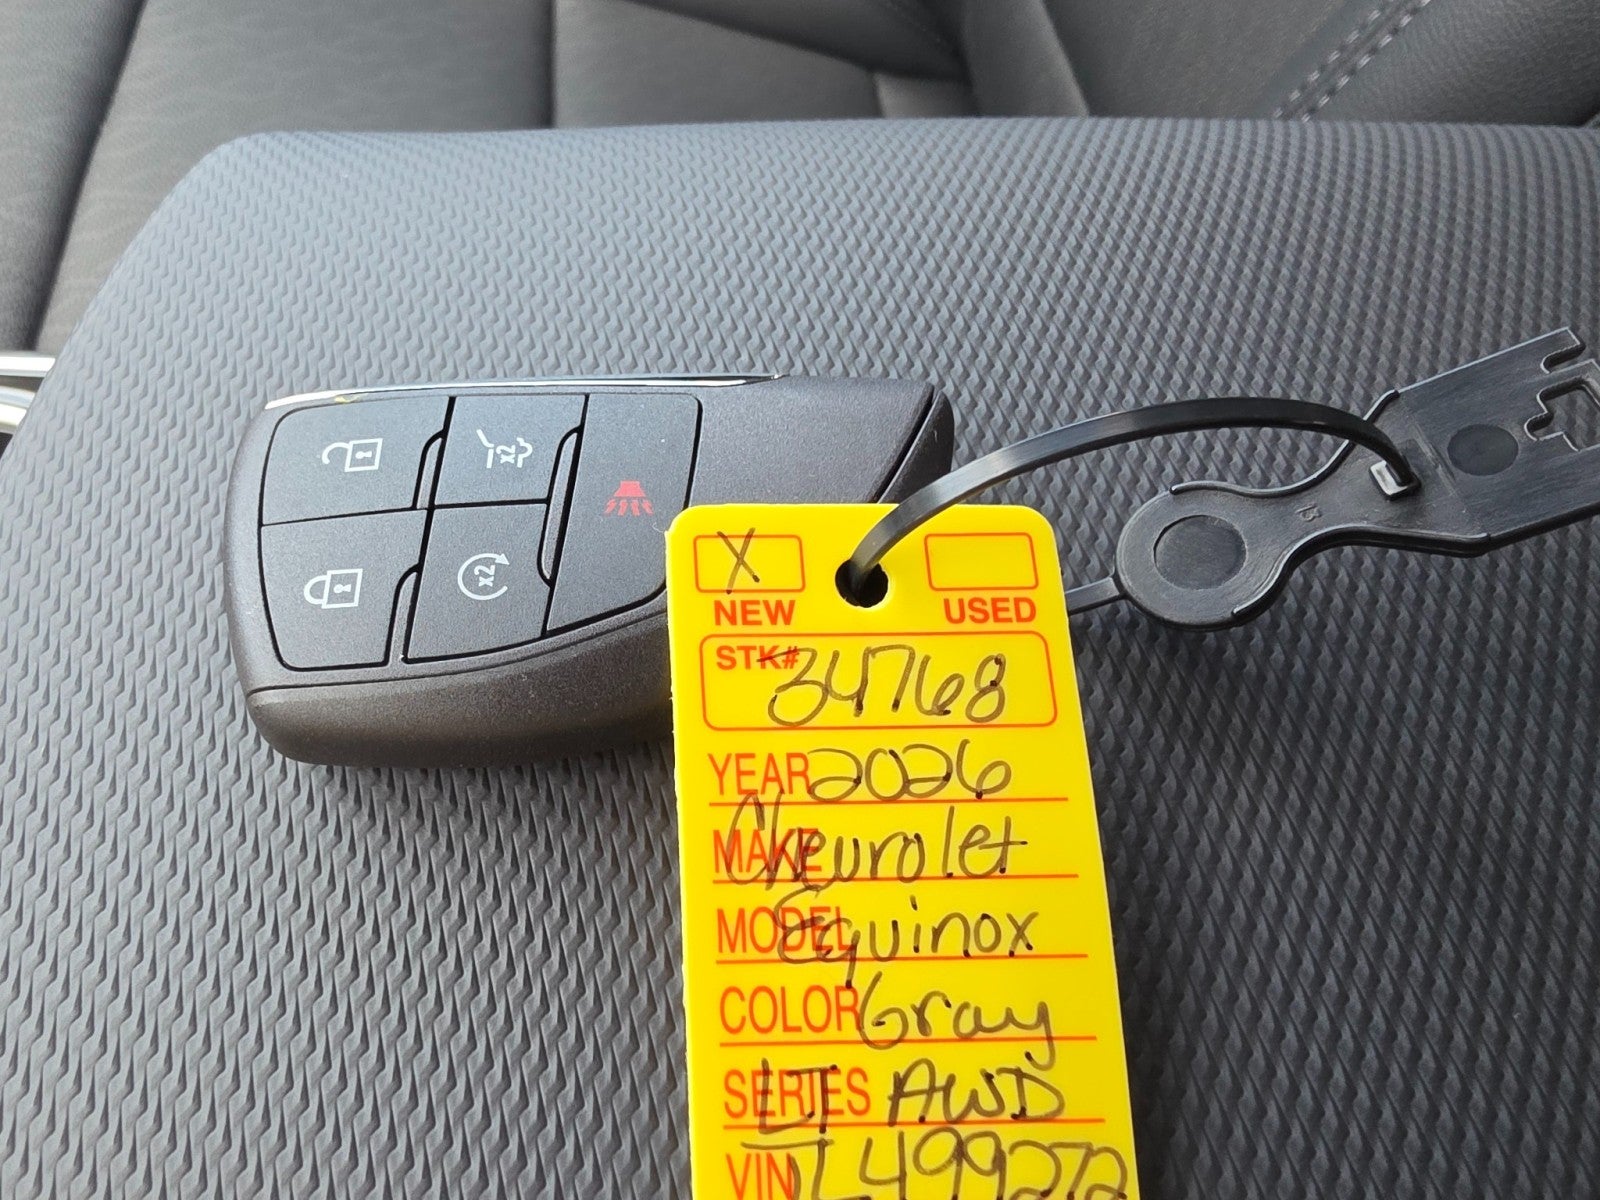 x2
x2
X
NEW USED
STK# 34768
YEAR 2026
MAKE Chevrolet
MODEL Equinox
COLOR Gray
SERIES LT AWD
VIN TL499272
13